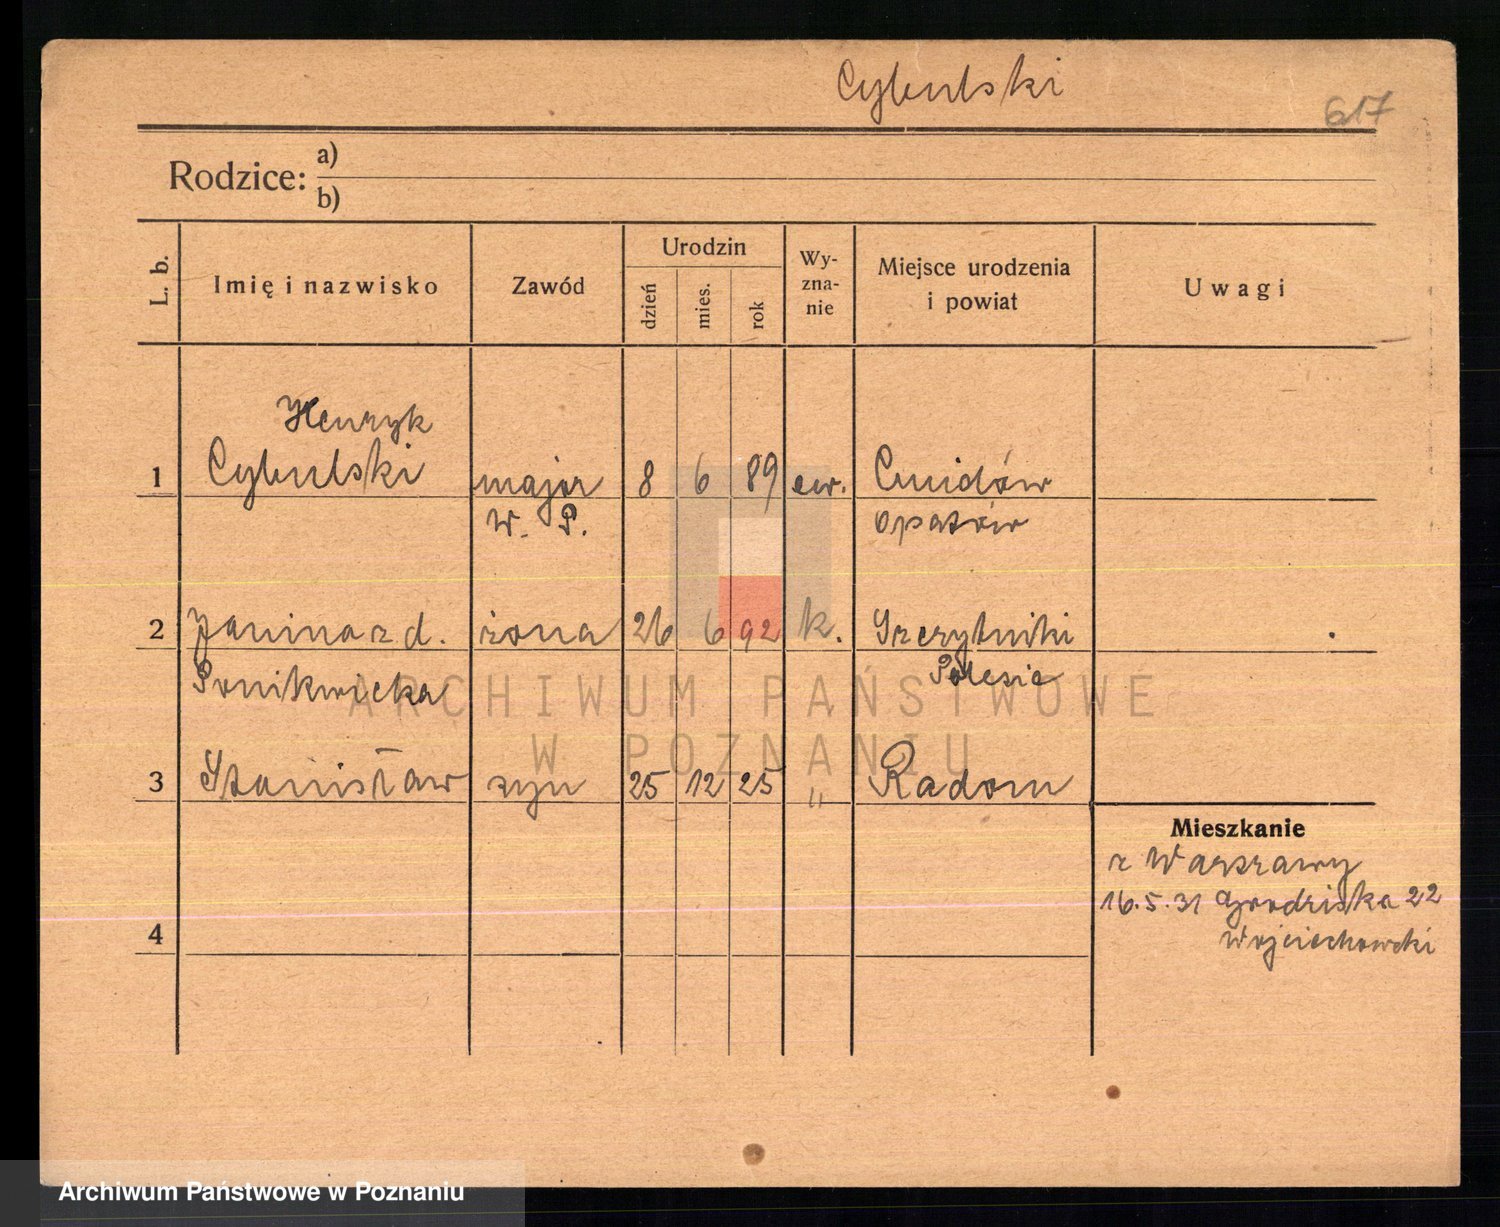 Cybulski
617
Rodzice: a)
b)
L. b. Imię i nazwisko Zawód Urodzin dzień mies. rok Wy-zna-nie Miejsce urodzenia i powiat Uwagi
Henryk
1 Cybulski major 8 6 89 ew. Cmidów
W. P. Opatów
2 Janina z d. żona 26 6 92 k. Szczytniki
Ponikwicka Polesie
ARCHIWUM PAŃSTWOWE
W POZNANIU
3 Stanisław syn 25 12 25 " Radom
Mieszkanie
z Warszawy
16.5.31 Grodziska 22
Wojciechowski
4
Archiwum Państwowe w Poznaniu